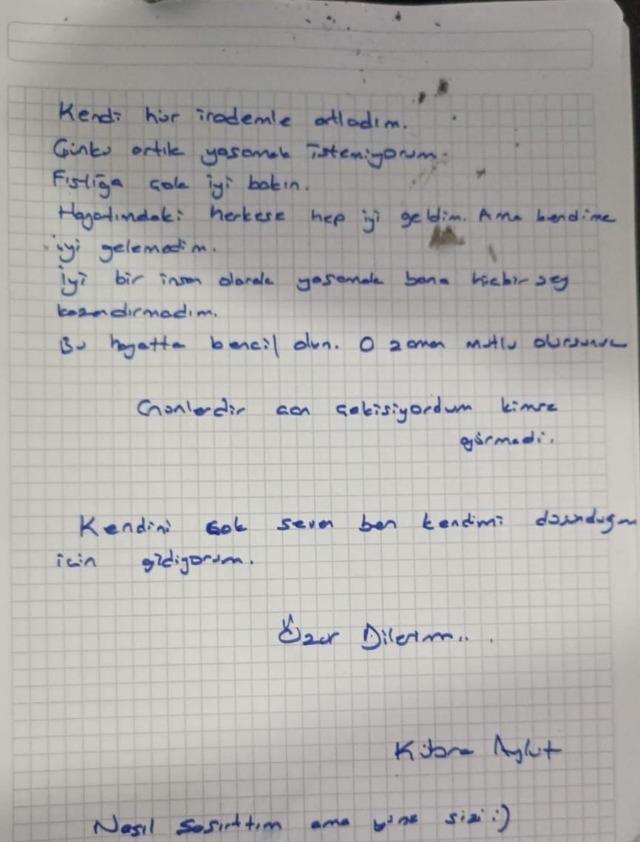 Kendi hür irademle atladım.
Çünkü artık yaşamak istemiyorum.
Fıstığa çok iyi bakın.
Hayatımdaki herkese hep iyi geldim. Ama kendime
iyi gelemedim.
İyi bir insan olarak yaşamak bana hiçbir şey
kazandırmadım.
Bu hayatta bencil olun. O zaman mutlu olursunuz
Günlerdir can çekişiyordum kimse
görmedi.
Kendini çok seven ben kendimi düşündüğüm
için gidiyorum.
Özür Dilerim...
Kübra Aykut
Nasıl şaşırttım ama yine sizi :)